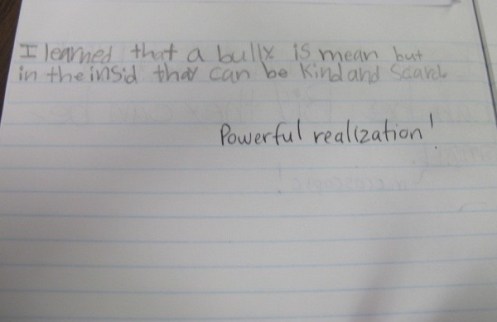 I learned that a bully is mean but
in the insid thay can be Kind and Scared
Powerful realization!